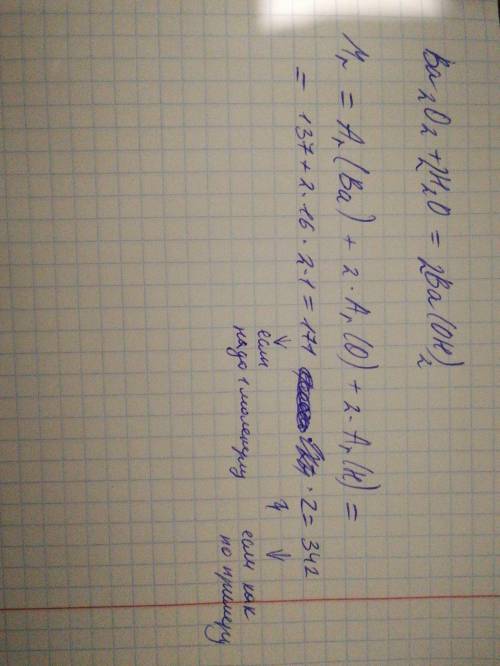 Ba₂O₂ + 2H₂O = 2Ba(OH)₂
Mr = Ar(Ba) + 2·Ar(O) + 2·Ar(H) =
= 137 + 2·16·2·1 = 171 · 2 = 342
↓ ↓
если
надо 1 молекулу
если как
по примеру